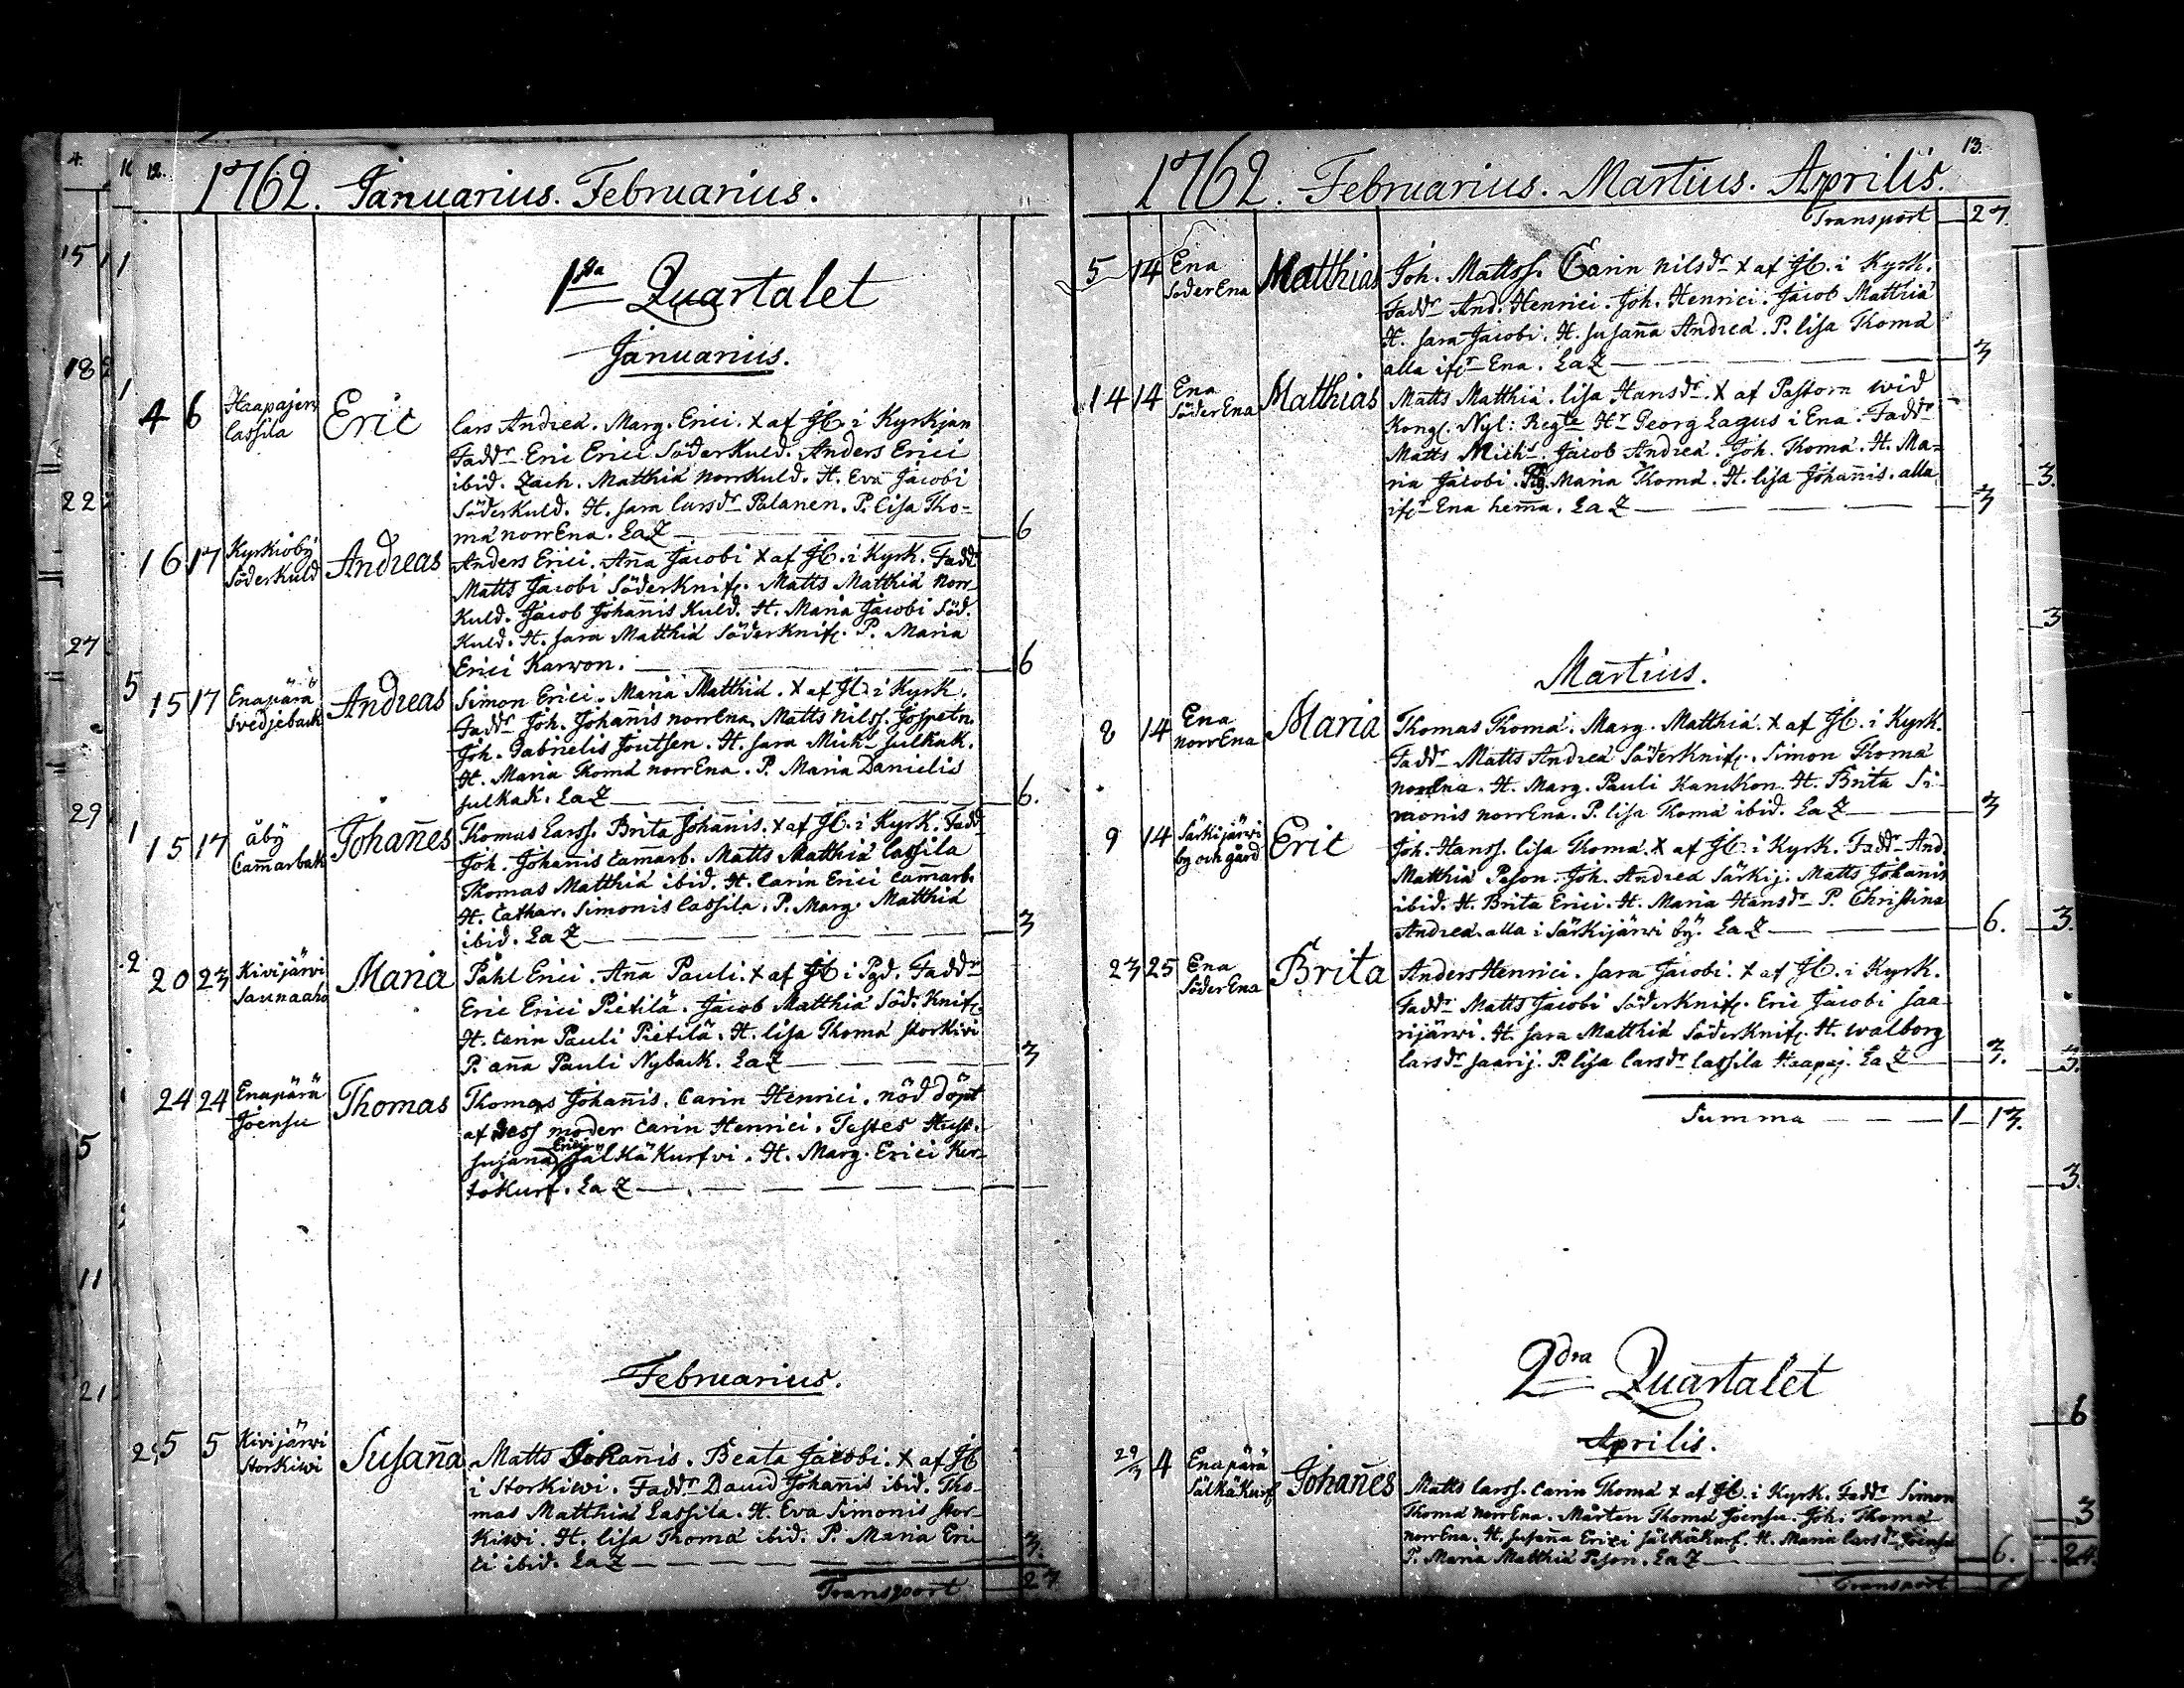 12.
1762. Januarius. Februarius.
1sta Quartalet
Januarius.
4 6 Haapajerf Cassila Eric
Lars Andreæ. Marg. Erici. X af JC. i Kyrkjan
Faddr Eric Erici Söderkuld. Anders Erici
ibid. Zach. Matthiæ Norrkuld. H. Eva Jacobi
Söderkuld. H. Sara Larsdr Palanen. P. Lisa Tho-
mæ norrEna. LaZ 6
16 17 Kyrkioby Söderkuld Andreas
Anders Erici. Aña Jacobi X af JC. i Kyrk. Faddr
Matts Jacobi SöderKnif. Matts Matthiæ Norr-
Kuld. Jacob Johañis Kuld. H. Maria Jacobi Söd.
Kuld. H. Sara Matthiæ SöderKnif. P. Maria
Erici Karvon. 6
15 17 Enapärä Svedjeback Andreas
Simon Erici. Maria Matthiæ. X af JC. i Kyrk.
Faddr Joh. Johañis norrEna. Matts Nilss.
Joh. Gabrielis Joutsen. H. Sara Mich. Julkak.
H. Maria Thomæ norrEna. P. Maria Danielis
Julkak. LaZ 6.
15 17 åby Cam̃arbak Johañes
Thomas Larss. Brita Johañis. X af JC. i Kyrk. Faddr
Joh. Johañis Cam̃arb. Matts Matthiæ Lassila
Thomas Matthiæ ibid. H. Carin Erici Cam̃arb.
H. Cathar. Simonis Cassila. P. Marg. Matthiæ
ibid. LaZ 3
20 23 Kivijärvi Saunaaho Maria
Påhl Erici. Aña Pauli. X af JC i Pgd. Faddr
Eric Erici Pietilä. Jacob Matthiæ Söd. Knif.
H. Carin Pauli Pietilä. H. Lisa Thomæ Storkivi
P. aña Pauli Nyback. LaZ 3
24 24 Enapärä Joensu Thomas
Thomas Johañis. Carin Henrici. nöd döpt
af dess moder Carin Henrici. Testes Hust.
Susaña Erici Jälkäkurfvi. H. Marg. Erici Ker-
tokurf. LaZ
Februarius.
5 5 Kivijärvi Storkiwi Susaña
Matts Johañis. Beata Jacobi. X af JC
i Storkiwi. Faddr David Johañis ibid. Tho-
mas Matthiæ Lassila. H. Eva Simonis Stor-
kiwi. H. Lisa Thomæ ibid. P. Maria Eri-
ci ibid. LaZ 3.
Transport 27
13.
1762. Februarius. Martius. Aprilis.
Transport 27.
5 14 Ena SöderEna Matthias
Joh. Mattss. Carin Nilsdr X af JC. i Kyrk.
Faddr And. Henrici. Joh. Henrici. Jacob Matthiæ
H. Sara Jacobi. H. Susaña Andreæ. P. Lisa Thomæ
alla ifr Ena. LaZ 3
14 14 Ena SöderEna Matthias
Matts Matthiæ. Lisa Hansdr. X af Pastorn wid
Kongl. Nyl: Regte Hr Georg Lagus i Ena. Faddr
Matts Michr. Jacob Andreæ. Joh. Thomæ. H. Ma-
ria Jacobi. Pig. Maria Thomæ. H. Lisa Johañis. alla
ifr Ena hem̃a. LaZ 3
Martius.
8 14 Ena norrEna Maria
Thomas Thomæ. Marg. Matthiæ. X af JC. i Kyrk.
Faddr Matts Andreæ SöderKnif. Simon Thomæ
norrEna. H. Marg. Pauli Kanckon. H. Brita Si-
monis norrEna. P. Lisa Thomæ ibid. LaZ 3
9 14 Särkijärwi by och gård Eric
Joh. Hanss. Lisa Thomæ. X af JC. i Kyrk. Faddr And.
Matthiæ Peson. Joh. Andreæ Särkij. Matts Johañis
ibid. H. Brita Erici. H. Maria Hansdr P. Christina
Andreæ. alla i Särkijärwi by. LaZ 6.
23 25 Ena SöderEna Brita
Anders Henrici. Sara Jacobi. X af JC. i Kyrk.
Faddr Matts Jacobi SöderKnif. Eric Jacobi Saa-
rijärwi. H. Sara Matthiæ SöderKnif. H. Walborg
Larsdr Saarij. P. Lisa Larsdr Cassila Haapaj. LaZ 3.
Summa 1 13.
2dra Quartalet
Aprilis.
29/3 4 Enapärä Jälkäkurf Johañes
Matts Larss. Carin Thomæ X af JC. i Kyrk. Faddr Simon
Thomæ norrEna. Mårten Thomæ Joensu. Joh. Thomæ
norrEna. H. Susaña Erici Jälkäkurf. H. Maria Larsdr Joensu
P. Maria Matthiæ Peson. LaZ 6.
Transport 6